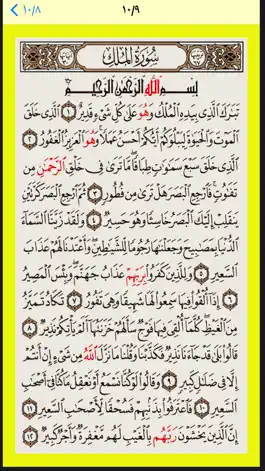 ١٠/٨
١٠/٩
سُورَةُ المُلْكِ
بِسْمِ ٱللَّهِ ٱلرَّحْمَٰنِ ٱلرَّحِيمِ
تَبَٰرَكَ ٱلَّذِي بِيَدِهِ ٱلْمُلْكُ وَهُوَ عَلَىٰ كُلِّ شَيْءٍ قَدِيرٌ ١ ٱلَّذِي خَلَقَ
ٱلْمَوْتَ وَٱلْحَيَوٰةَ لِيَبْلُوَكُمْ أَيُّكُمْ أَحْسَنُ عَمَلًا وَهُوَ ٱلْعَزِيزُ ٱلْغَفُورُ ٢
ٱلَّذِي خَلَقَ سَبْعَ سَمَٰوَٰتٍ طِبَاقًا مَّا تَرَىٰ فِي خَلْقِ ٱلرَّحْمَٰنِ مِن
تَفَٰوُتٍ فَٱرْجِعِ ٱلْبَصَرَ هَلْ تَرَىٰ مِن فُطُورٍ ٣ ثُمَّ ٱرْجِعِ ٱلْبَصَرَ كَرَّتَيْنِ
يَنقَلِبْ إِلَيْكَ ٱلْبَصَرُ خَاسِئًا وَهُوَ حَسِيرٌ ٤ وَلَقَدْ زَيَّنَّا ٱلسَّمَآءَ
ٱلدُّنْيَا بِمَصَٰبِيحَ وَجَعَلْنَٰهَا رُجُومًا لِّلشَّيَٰطِينِ وَأَعْتَدْنَا لَهُمْ عَذَابَ
ٱلسَّعِيرِ ٥ وَلِلَّذِينَ كَفَرُوا۟ بِرَبِّهِمْ عَذَابُ جَهَنَّمَ وَبِئْسَ ٱلْمَصِيرُ
٦ إِذَآ أُلْقُوا۟ فِيهَا سَمِعُوا۟ لَهَا شَهِيقًا وَهِيَ تَفُورُ ٧ تَكَادُ تَمَيَّزُ
مِنَ ٱلْغَيْظِ كُلَّمَآ أُلْقِيَ فِيهَا فَوْجٌ سَأَلَهُمْ خَزَنَتُهَآ أَلَمْ يَأْتِكُمْ نَذِيرٌ ٨
قَالُوا۟ بَلَىٰ قَدْ جَآءَنَا نَذِيرٌ فَكَذَّبْنَا وَقُلْنَا مَا نَزَّلَ ٱللَّهُ مِن شَيْءٍ إِنْ أَنتُمْ
إِلَّا فِي ضَلَٰلٍ كَبِيرٍ ٩ وَقَالُوا۟ لَوْ كُنَّا نَسْمَعُ أَوْ نَعْقِلُ مَا كُنَّا فِيٓ أَصْحَٰبِ
ٱلسَّعِيرِ ١٠ فَٱعْتَرَفُوا۟ بِذَنۢبِهِمْ فَسُحْقًا لِّأَصْحَٰبِ ٱلسَّعِيرِ ١١
إِنَّ ٱلَّذِينَ يَخْشَوْنَ رَبَّهُم بِٱلْغَيْبِ لَهُم مَّغْفِرَةٌ وَأَجْرٌ كَبِيرٌ ١٢